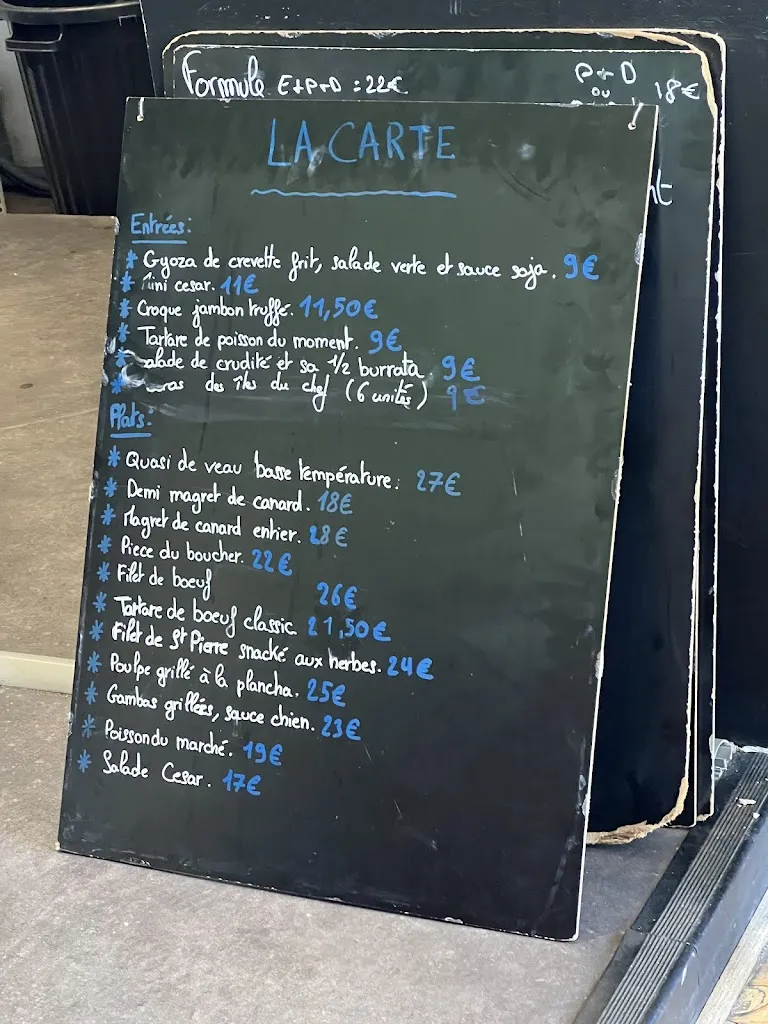 Formule E+P+D : 22€
P+D
ou
18€
LA CARTE
Entrées:
* Gyoza de crevette frit, salade verte et sauce soja. 9€
* Mini cesar. 11€
* Croque jambon truffé. 11,50€
* Tartare de poisson du moment. 9€
* Salade de crudité et sa 1/2 burrata. 9€
* des îles du chef (6 unités) 9€
Plats:
* Quasi de veau basse température. 27€
* Demi magret de canard. 18€
* Magret de canard entier. 28€
* Piece du boucher. 22€
* Filet de boeuf 26€
* Tartare de boeuf classic. 21,50€
* Filet de St Pierre snacké aux herbes. 24€
* Poulpe grillé à la plancha. 25€
* Gambas grillées, sauce chien. 23€
* Poisson du marché. 19€
* Salade Cesar. 17€